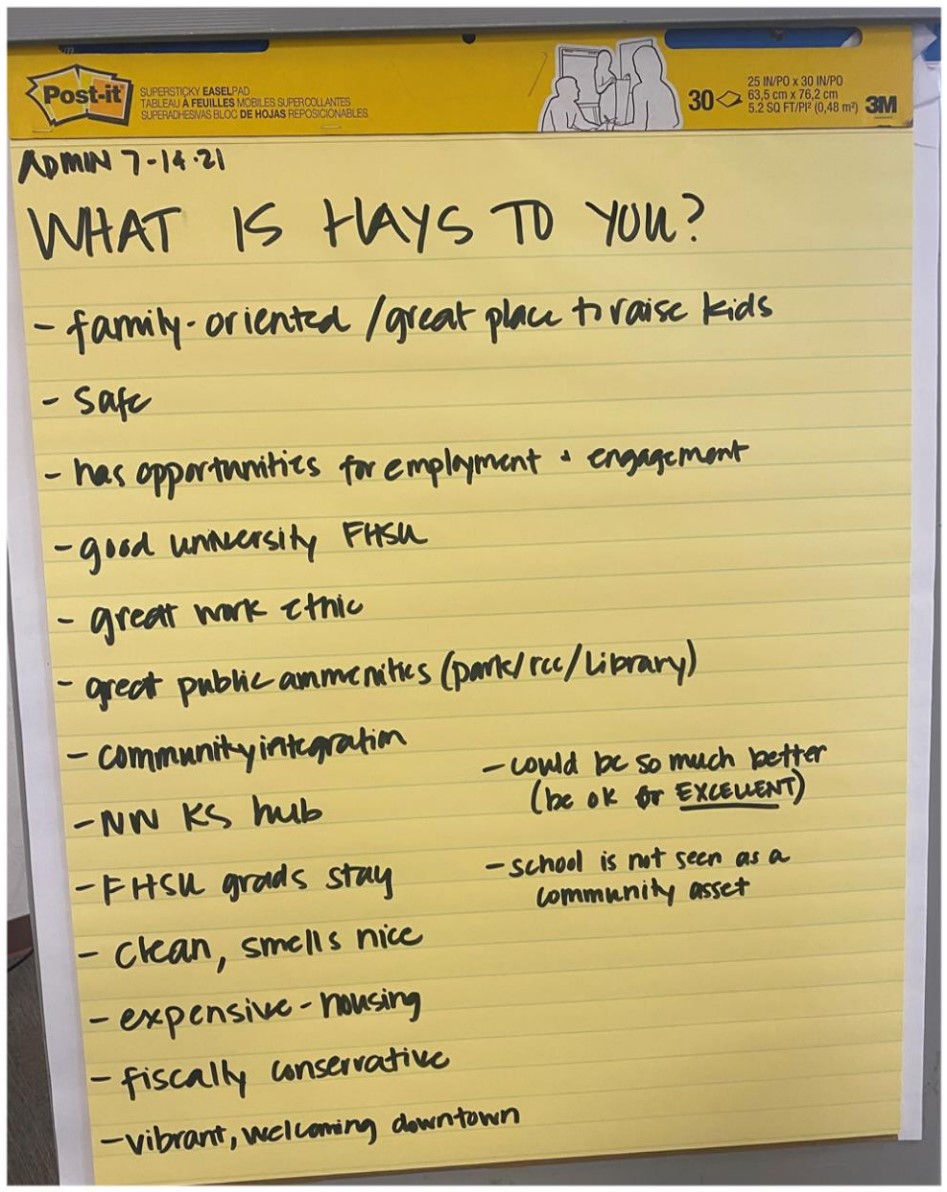 Post-it
SUPERSTICKY EASELPAD
TABLEAU À FEUILLES MOBILES SUPERCOLLANTES
SUPERADHESIVAS BLOC DE HOJAS REPOSICIONABLES
30
25 IN/PO x 30 IN/PO
63,5 cm x 76,2 cm
5.2 SQ FT/PI² (0,48 m²)
3M
ADMIN 7-14-21
WHAT IS HAYS TO YOU?
- family-oriented / great place to raise kids
- safe
- has opportunities for employment + engagement
- good university FHSU
- great work ethic
- great public ammenities (park/rec/library)
- community integration
- NW KS hub
- FHSU grads stay
- clean, smells nice
- expensive - housing
- fiscally conservative
- vibrant, welcoming downtown
- could be so much better
(be ok for EXCELLENT)
- school is not seen as a
community asset